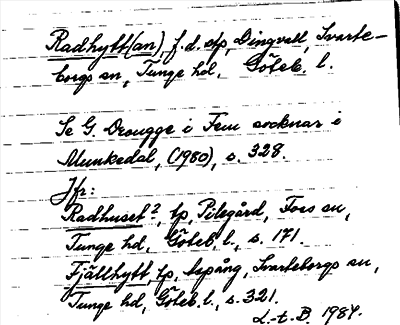 Radhytt(an), f.d. stp, Dingvall, Svarte-
borgs sn, Tunge hd, Göteb. l.
Se G. Drougge i Fem socknar i
Munkedal, (1980), s. 328.
Jfr:
Radhuset², tp, Pilegård, Foss sn,
Tunge hd, Göteb. l., s. 171.
Fjällhytt, tp, Aspång, Svarteborgs sn,
Tunge hd, Göteb. l., s. 321.
L.-t. B. 1984.